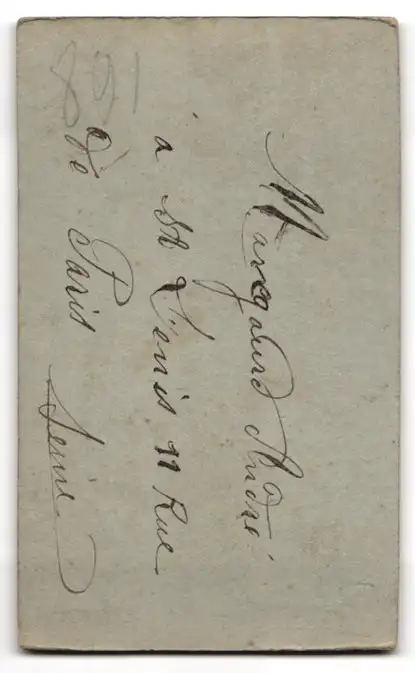 Marcgaurd André
à St Denis 11 Rue
de Paris Seine